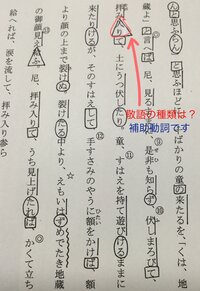 んと思ふらんと思ふほどに、十ばかりの童の来たるを、「くは、地
蔵よ」と言へば、尼、見るままに、是非も知らず、伏しまろびて、
拝み入りて、土にうつ伏したり。童、すはえを持て遊びけるままに
来たりけるが、そのすはえして、手すさみのやうに額をかけば、額
より顔の上まで裂けぬ。裂けたる中より、えもいはずめでたき地蔵
の御顔見え給ふ。尼、拝み入りて、うち見上げたれば、かくて立ち
給へれば、涙を流して、拝み入り参ら
敬語の種類は？
補助動詞です